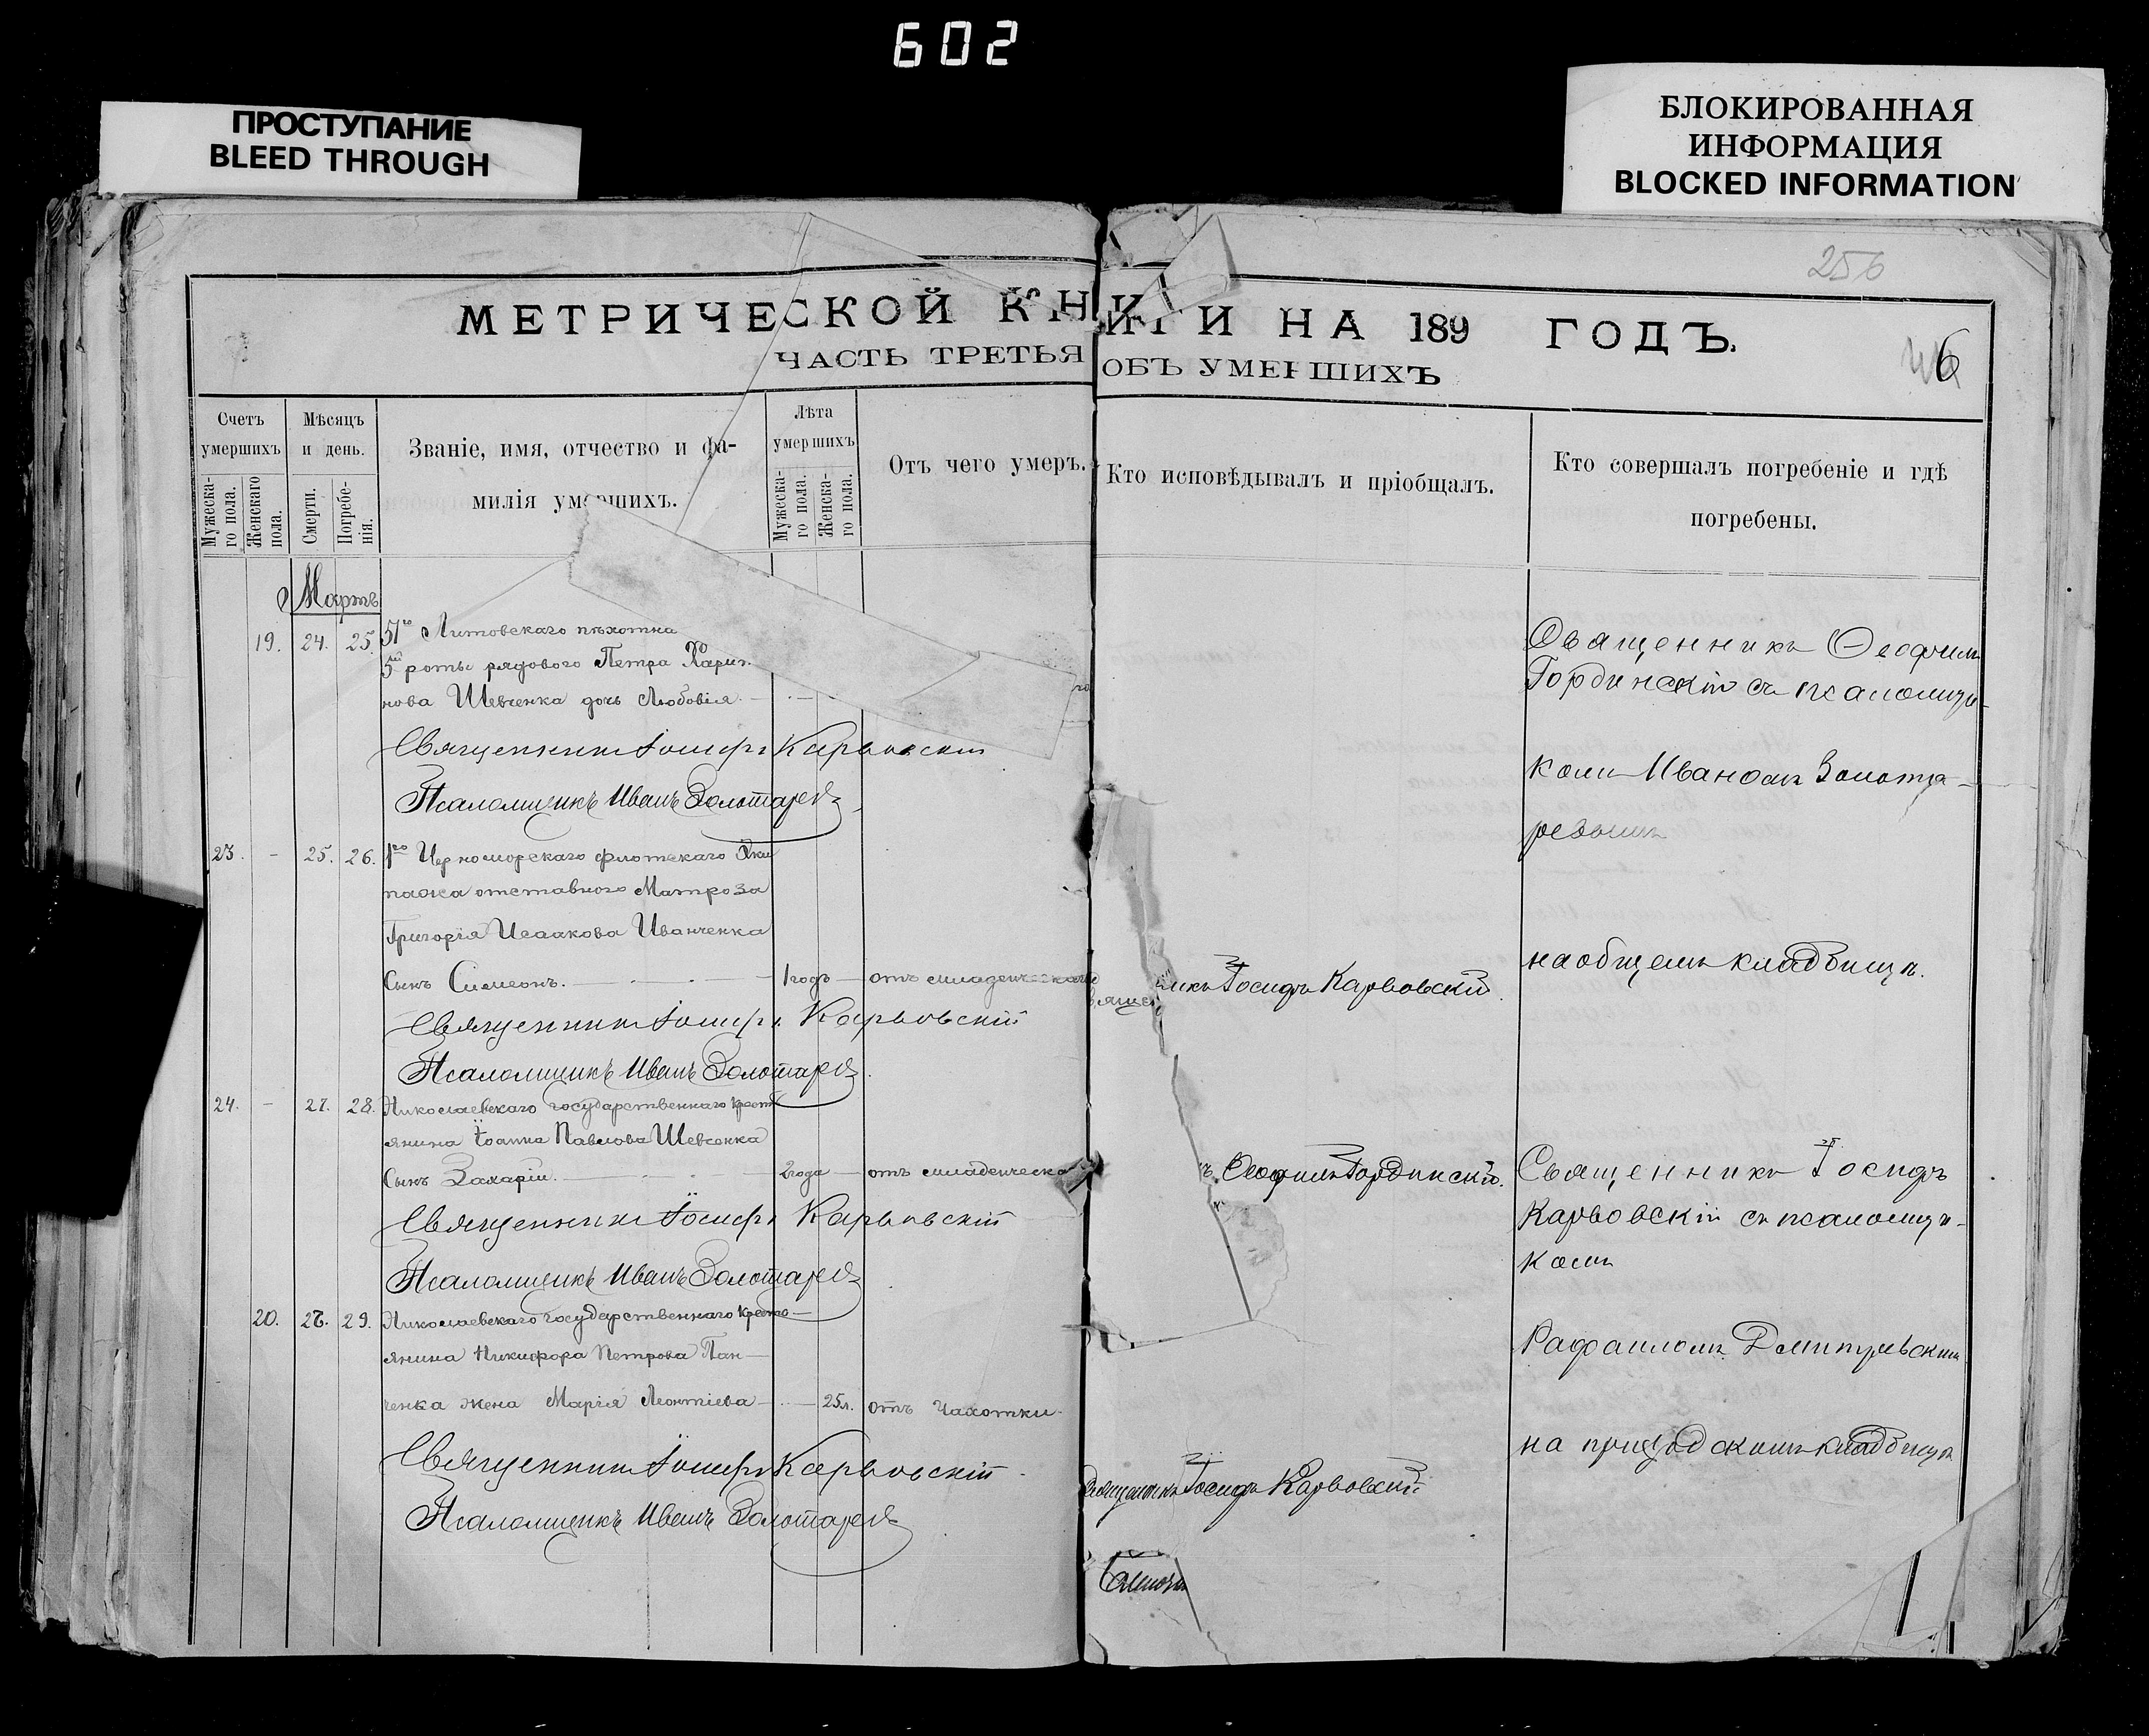 602
ПРОСТУПАНИЕ
BLEED THROUGH
БЛОКИРОВАННАЯ
ИНФОРМАЦИЯ
BLOCKED INFORMATION
256
МЕТРИЧЕСКОЙ КНИГИ НА 189 ГОДЪ.
6
ЧАСТЬ ТРЕТЬЯ ОБЪ УМЕРШИХЪ
Счетъ умершихъ
Мужеска-
го пола.
Женскаго
пола.
Мѣсяцъ и день.
Смерти.
Погребе-
нія.
Званіе, имя, отчество и фа-
милія умершихъ.
Лѣта умершихъ
Мужеска-
го пола.
Женска-
го пола.
Отъ чего умеръ.
Кто исповѣдывалъ и пріобщалъ.
Кто совершалъ погребеніе и гдѣ
погребены.
Мартъ
19. 24. 25. 51го Литовскаго пѣхотна
5й роты рядового Петра Харит
нова Шевченка дочь Любовія
Священникъ Іосифъ Карвовскій
Псаломщикъ Иванъ Золотаревъ
Священникъ Ѳеофилъ
Гординскій съ псаломщи-
комъ Иваномъ Золота-
ревымъ
23. - 25. 26. 1го Черноморскаго флотскаго Эки
пажа отставного Матроза
Григорія Исаакова Иванченка
Сынъ Симеонъ. 1 годъ отъ младенческаго
Іосифъ Карвовскій
на общемъ кладбищѣ.
Священникъ Іосифъ Карвовскій
Псаломщикъ Иванъ Золотаревъ
24. - 27. 28. Николаевскаго государственнаго крестъ
янина Іоанна Павлова Шевченка
Сынъ Захарій. 2 года отъ младенческа
Ѳеофилъ Гординскій.
Священникъ Іосифъ
Карвовскій съ псаломщи-
комъ
Священникъ Іосифъ Карвовскій
Псаломщикъ Иванъ Золотаревъ
20. 29. Николаевскаго государственнаго кресть
янина Никифора Петрова Пан
ченка жена Марія Леонтіева 25 л. отъ Чахотки
Священникъ Іосифъ Карвовскій
Рафаиломъ
на приходскомъ кладбищѣ
Священникъ Іосифъ Карвовскій
Псаломщикъ Иванъ Золотаревъ